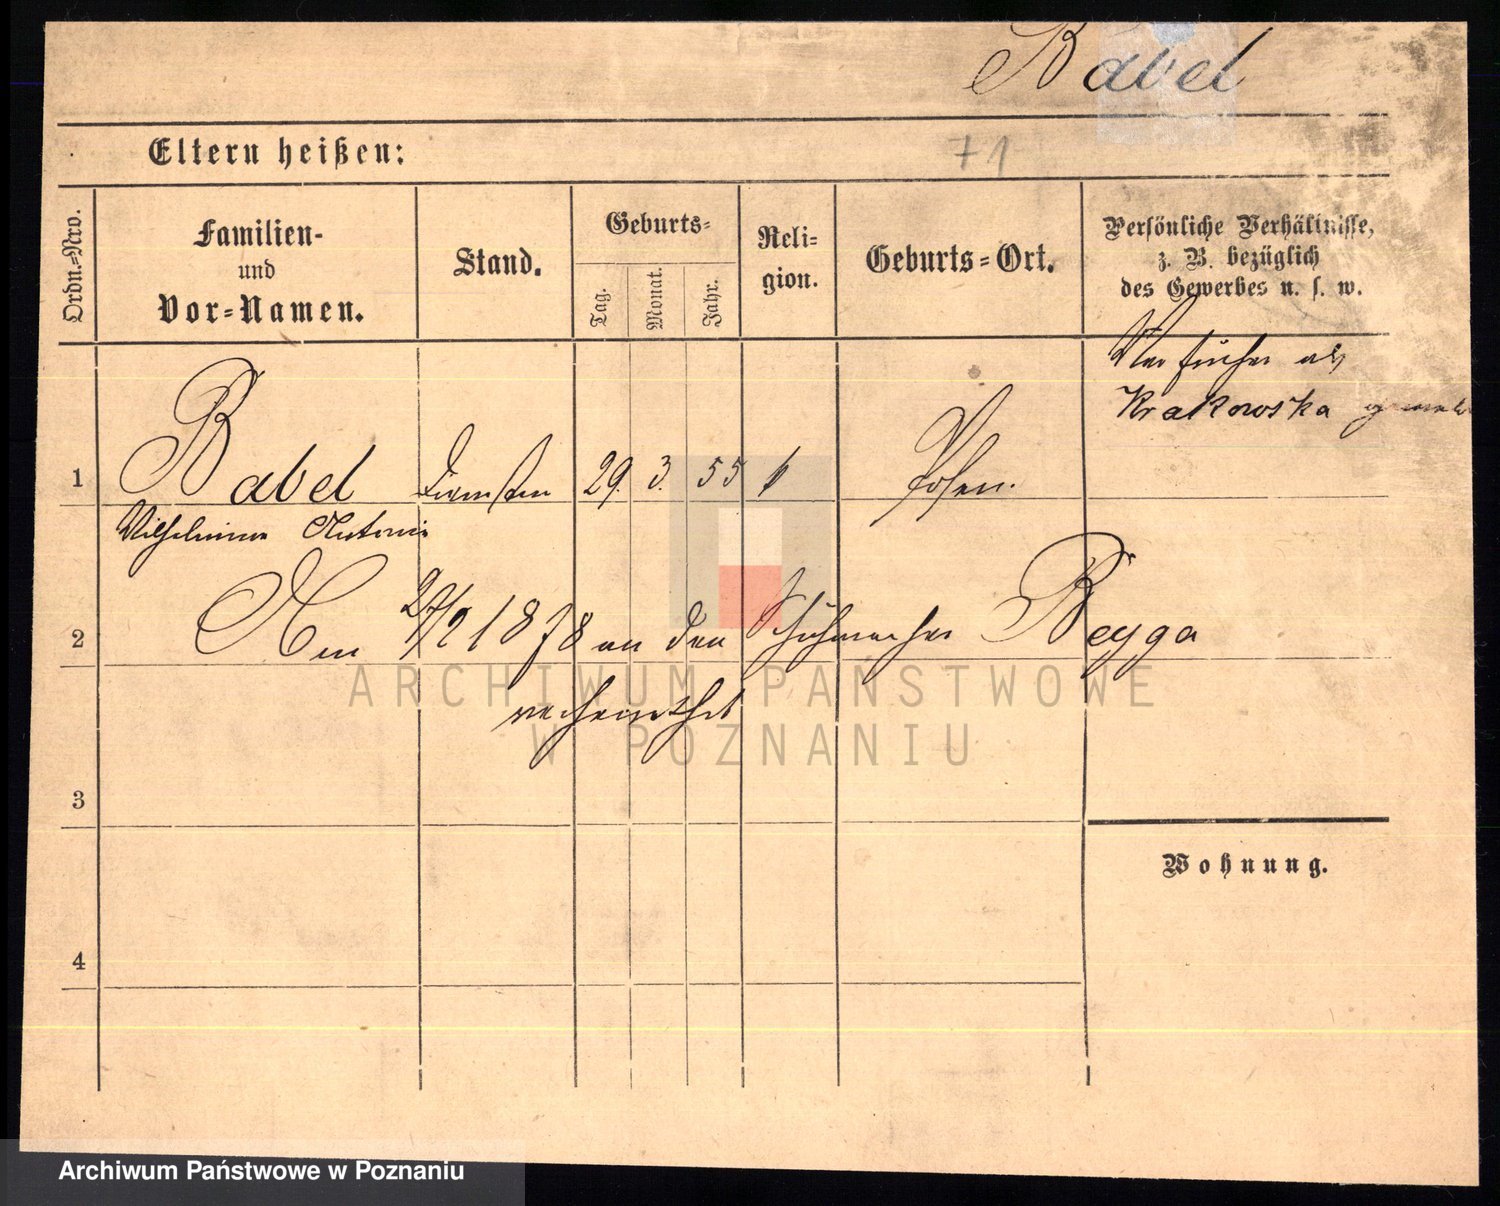 Babel
71
Eltern heißen:
Ordn.-Nro.
Familien-
und
Vor-Namen.
Stand.
Geburts-
Tag.
Monat.
Jahr.
Reli-
gion.
Geburts-Ort.
Persönliche Verhältnisse,
z. B. bezüglich
des Gewerbes u. s. w.
War früher als
Krakowska
1 Babel 29. 3. 55 Posen.
Wilhelmine Antonie
2 Am 27/2 1878 an den Schuhmacher Beyga
verheirathet
3
Wohnung.
4
ARCHIWUM PAŃSTWOWE
W POZNANIU
Archiwum Państwowe w Poznaniu